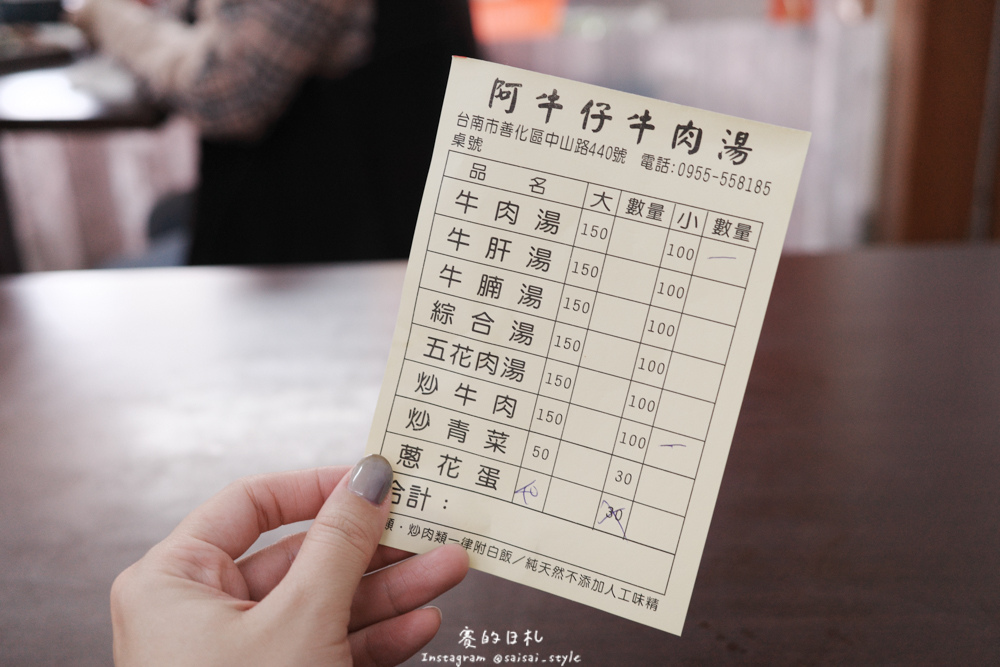 阿牛仔牛肉湯
台南市善化區中山路440號 電話:0955-558185
桌號
品名 大 數量 小 數量
牛肉湯 150 100 一
牛肝湯 150 100
牛腩湯 150 100
綜合湯 150 100
五花肉湯 150 100
炒牛肉 150 100 一
炒青菜 50 30
蔥花蛋 40 30
合計：
類·炒肉類一律附白飯/純天然不添加人工味精
賽的日札
Instagram @saisai_style